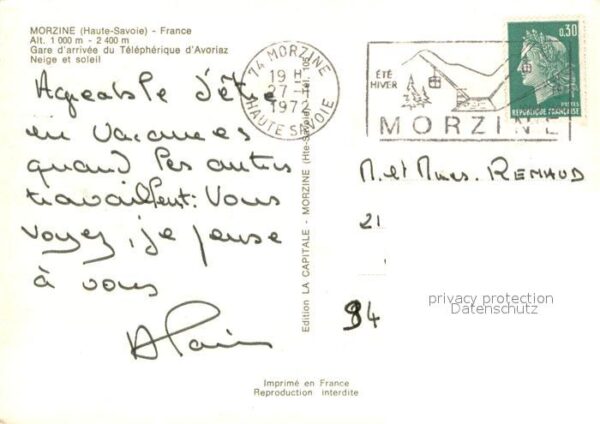 MORZINE (Haute-Savoie) - France
Alt. 1 000 m - 2 400 m
Gare d'arrivée du Téléphérique d'Avoriaz
Neige et soleil
Agréable d'être
en vacances
quand les autres
travaillent: Vous
voyez, je pense
à vous
Alain
Edition LA CAPITALE - MORZINE (Hte-Savoie)
74 MORZINE
19 H
27-1
1972
HAUTE SAVOIE
ÉTÉ
HIVER
MORZINE
0,30
POSTES
REPUBLIQUE FRANÇAISE
M. et Mme. REMAUD
21
94
privacy protection
Datenschutz
Imprimé en France
Reproduction interdite